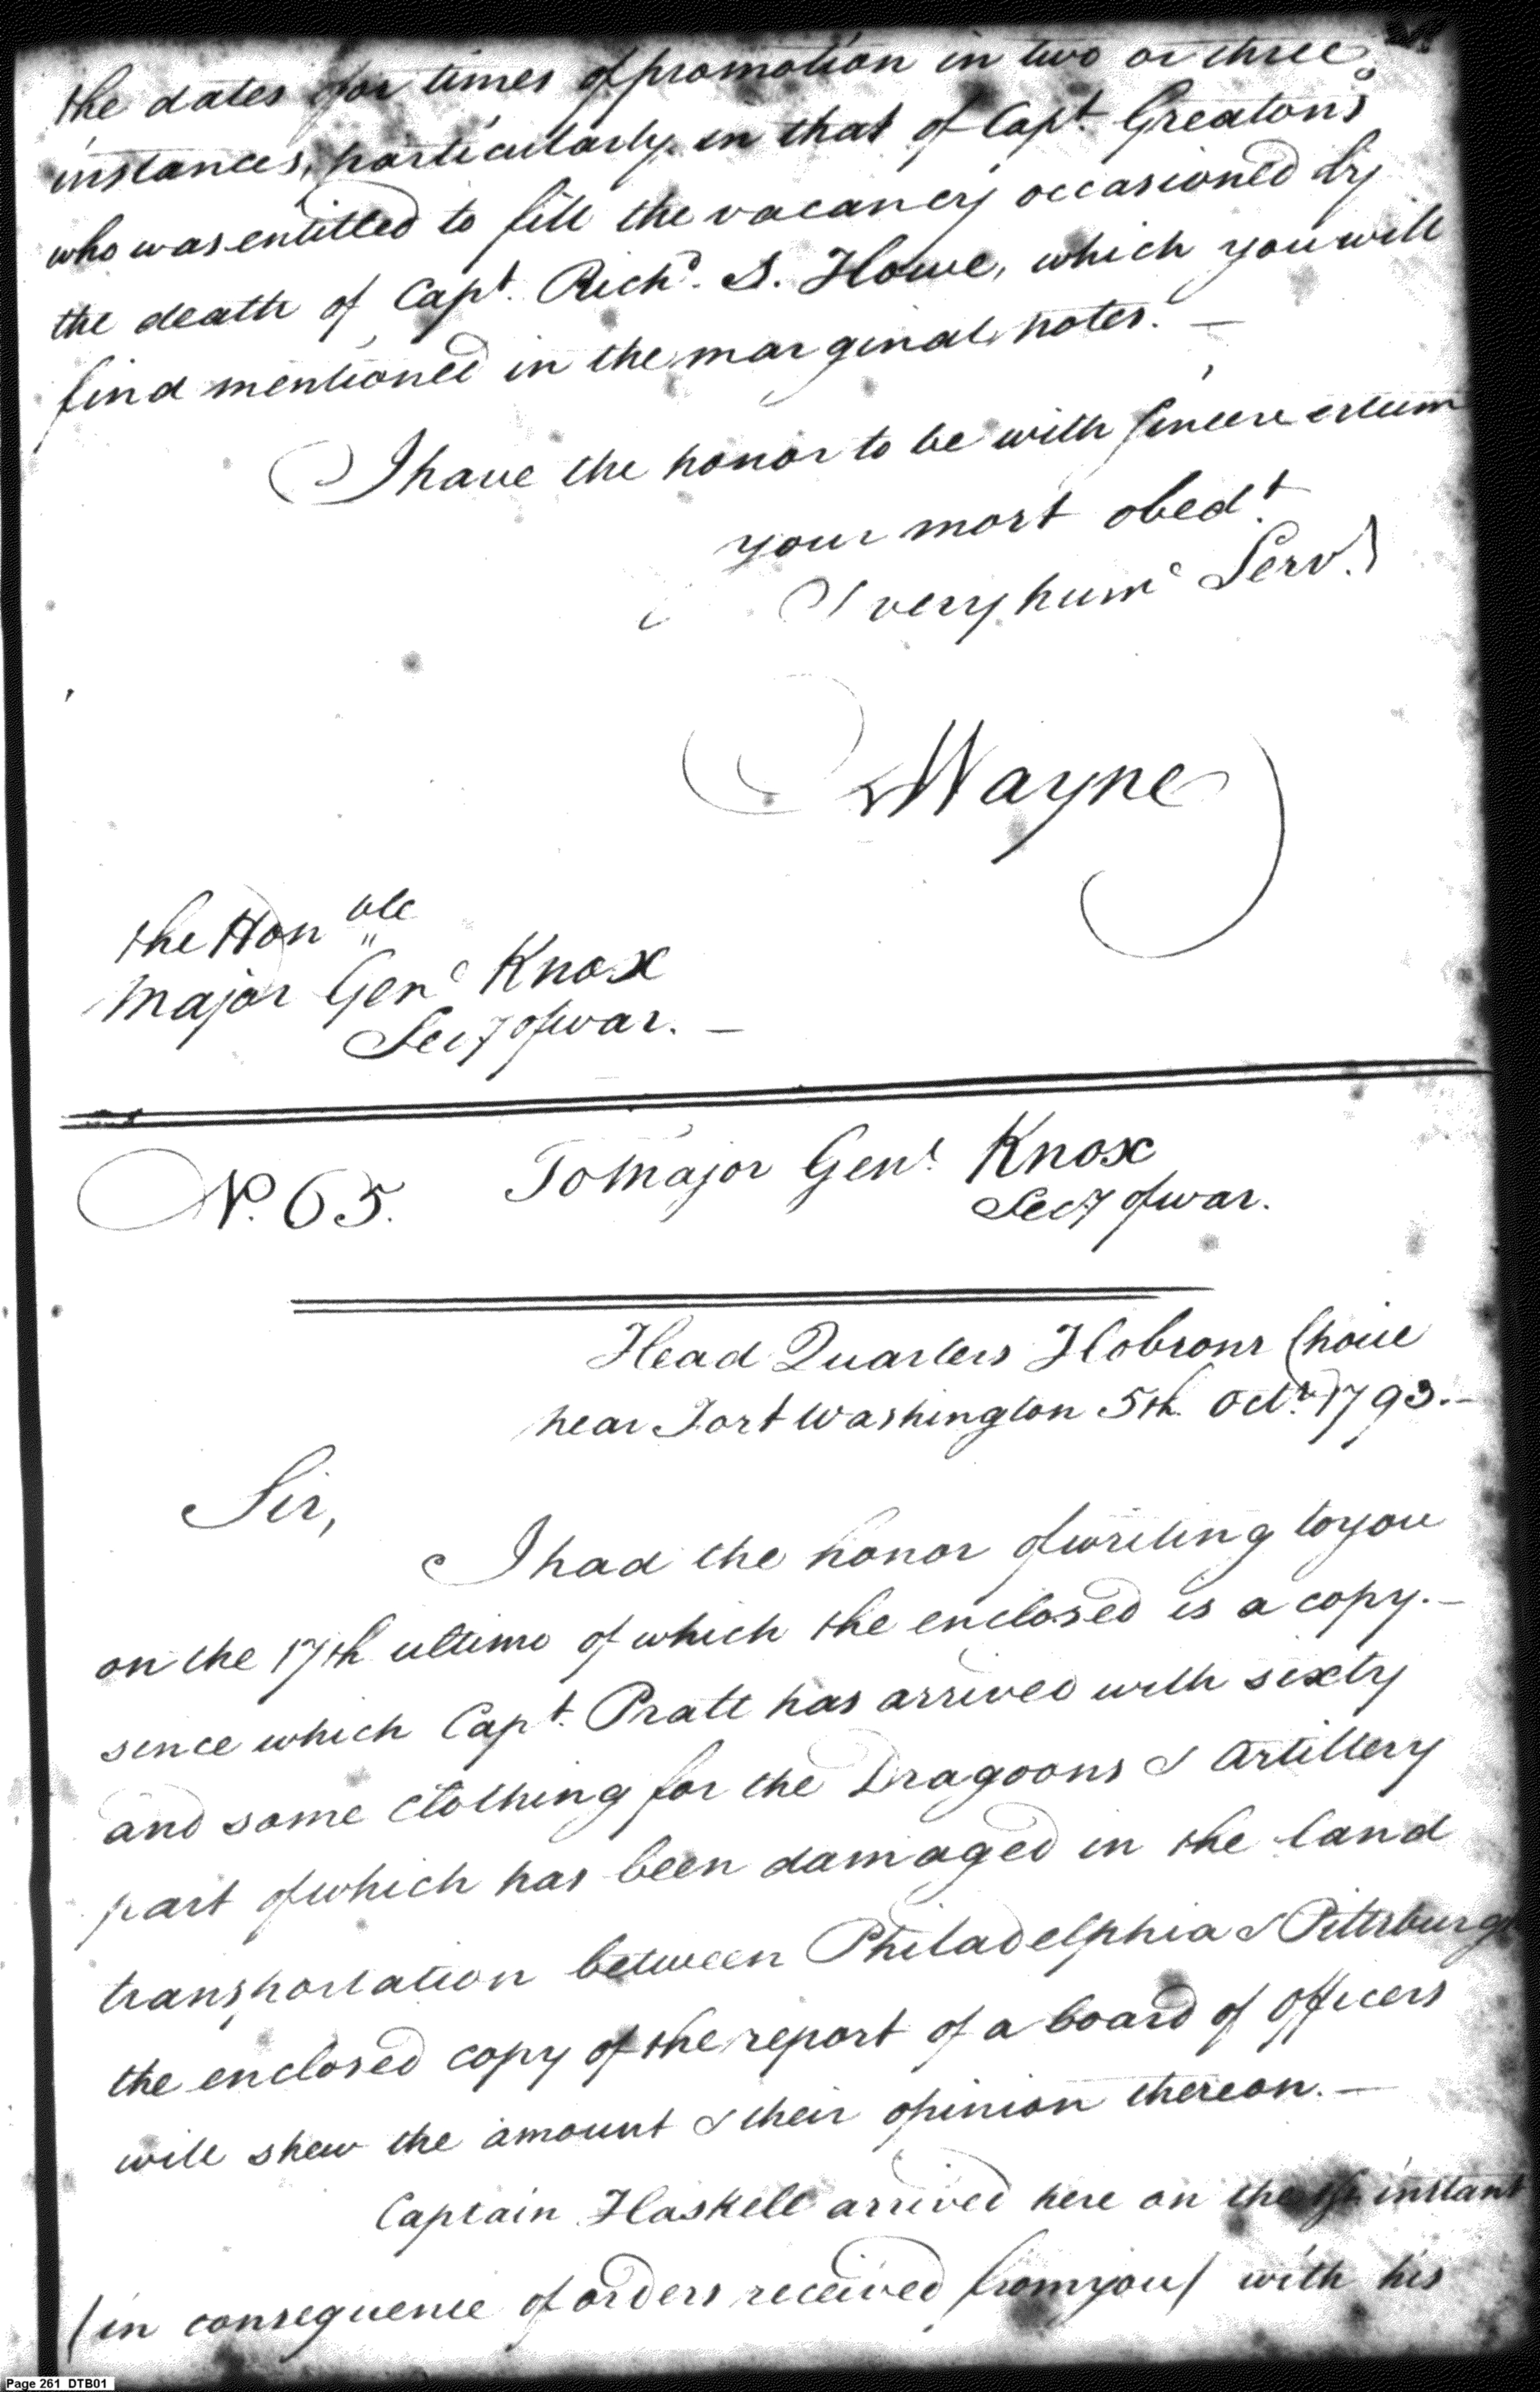 the dates for times of promotion in two or three
instances, particularly in that of Capt. Greatons
who was entitled to fill the vacancy occasioned by
the death of Capt. Richd. S. Howe, which you will
find mentioned in the marginal notes. —
I have the honor to be with sincere esteem
your most obedt.
& very hume Servt.
Wayne
the Honble
Major Genl Knox
Secy of war. —
No. 65. To Major Genl. Knox
Secy of war.
Head Quarters Hobsons Choice
near Fort Washington 5th. Octr. 1793. —
Sir,
I had the honor of writing to you
on the 17th ultimo of which the enclosed is a copy. —
since which Capt. Pratt has arrived with sixty
and some Clothing for the Dragoons & Artillery
part of which has been damaged in the land
transportation between Philadelphia & Pittsburgh
the enclosed copy of the report of a board of officers
will shew the amount & their opinion thereon. —
Captain Haskell arrived here on the instant
/in consequence of orders received from you/ with his
Page 261 DTB01